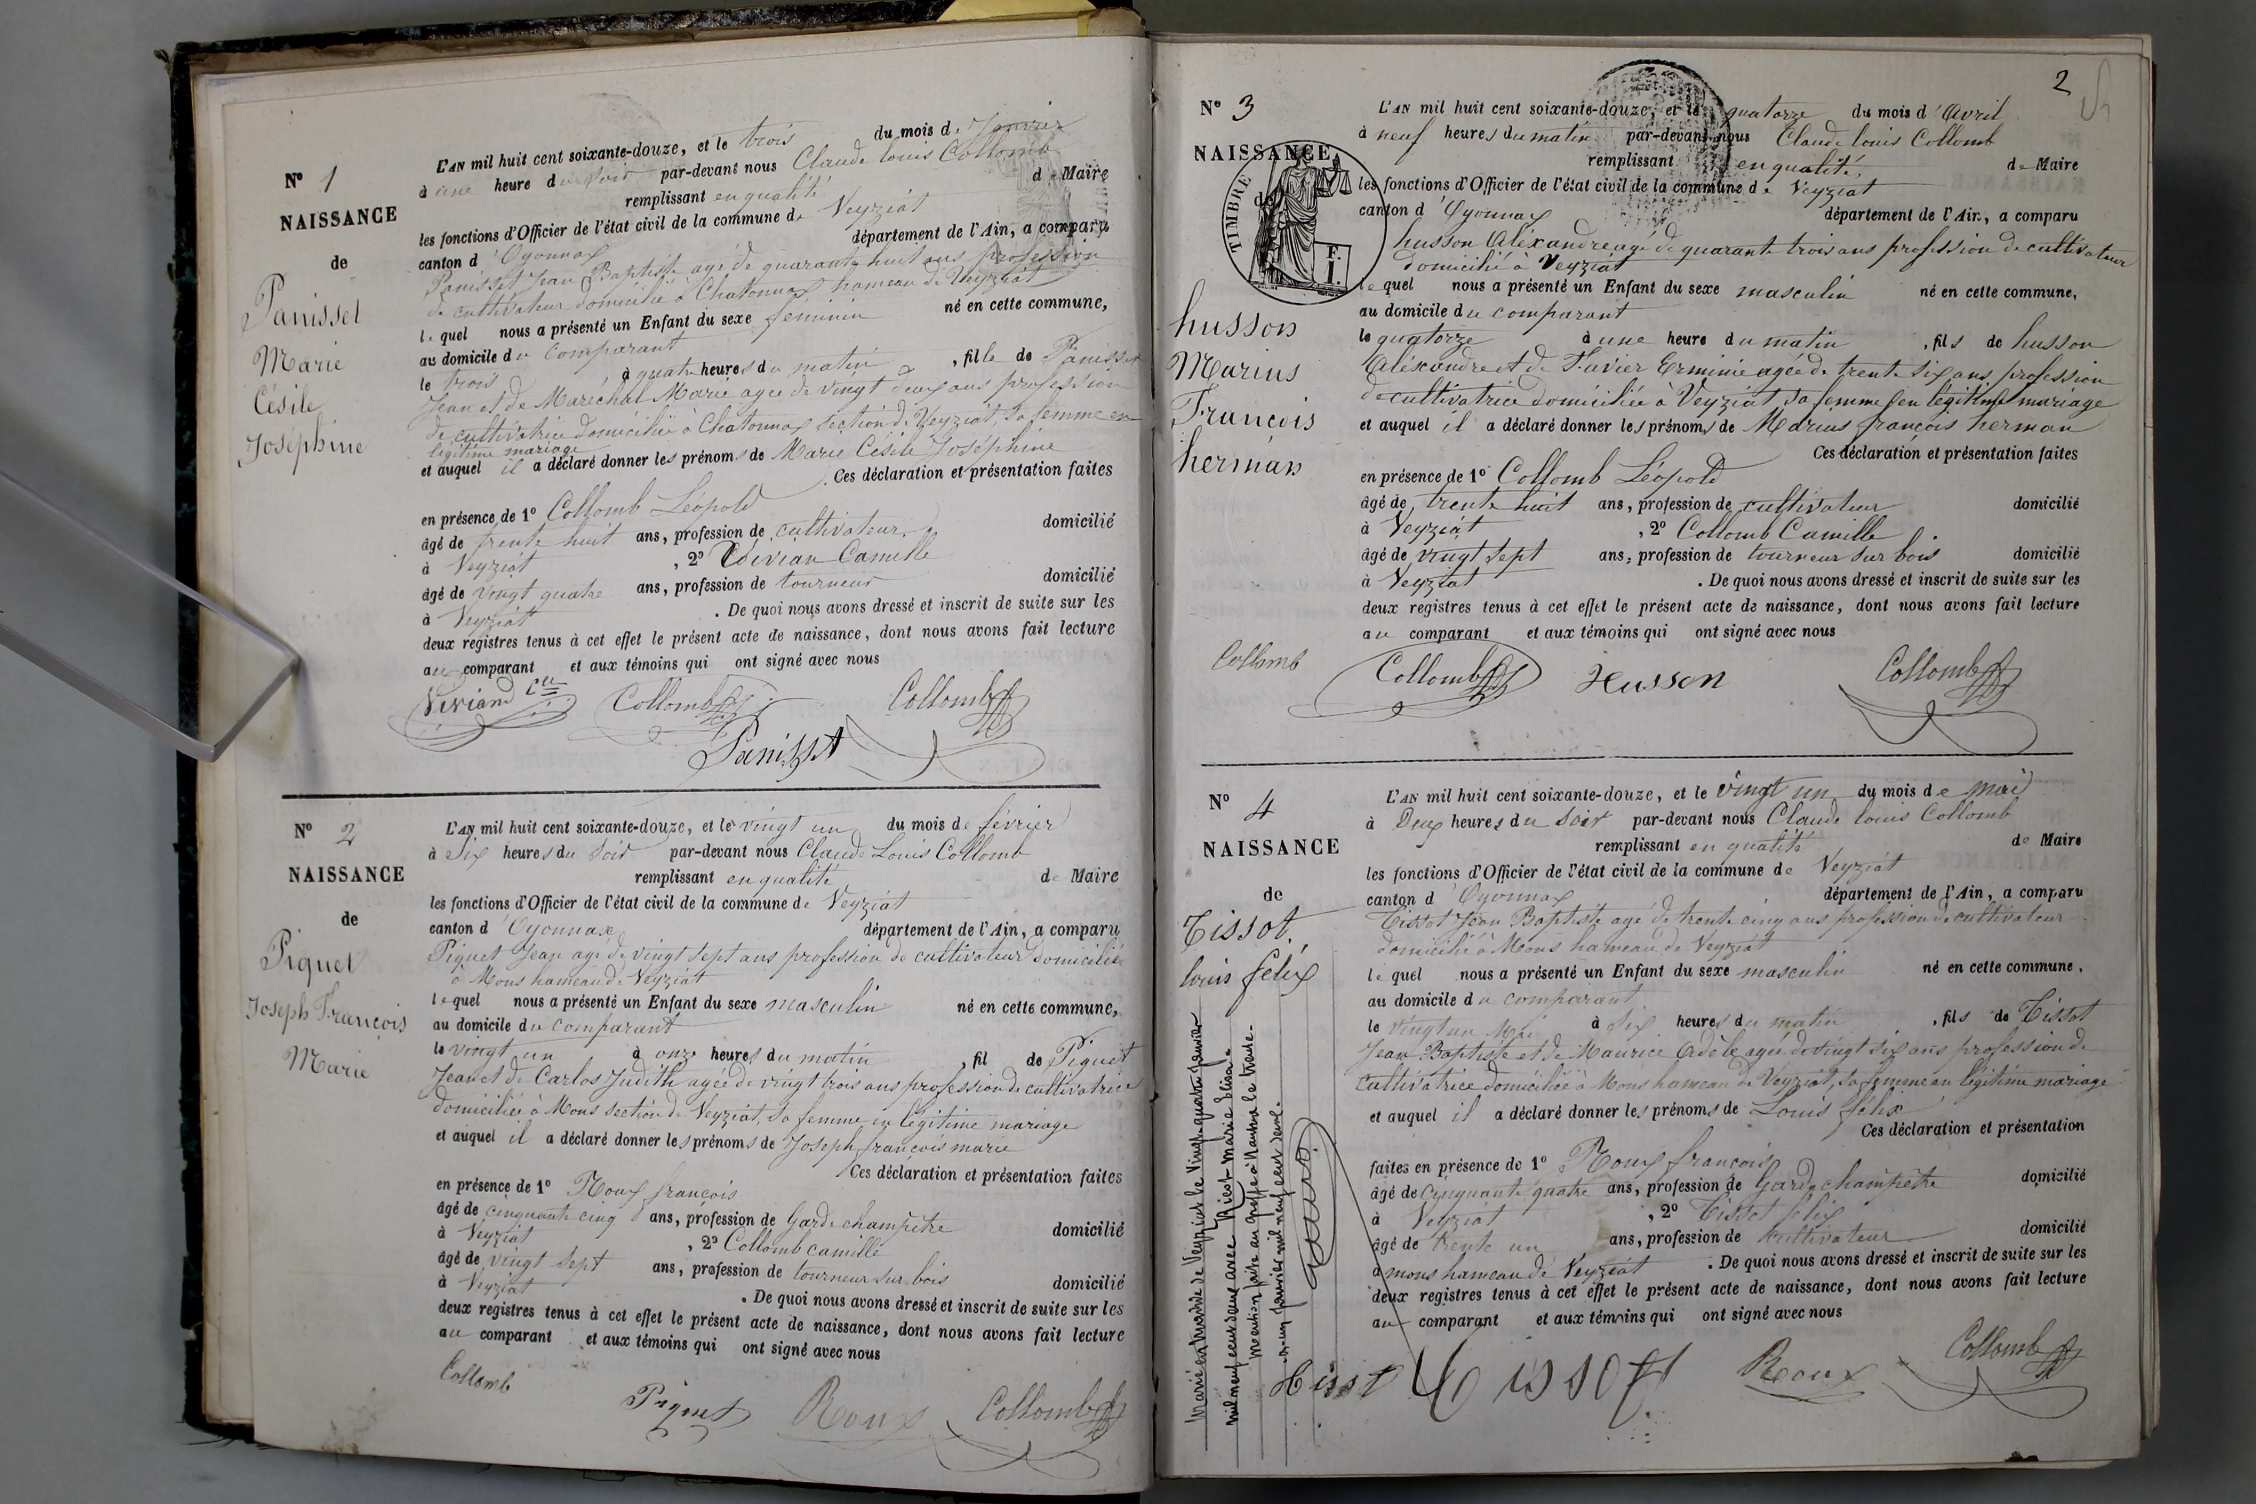 N° 1
NAISSANCE
de
Panisset
Marie
Césile
Joséphine
L'AN mil huit cent soixante-douze, et le trois du mois de Janvier
à une heure du soir par-devant nous Claude louis Collomb
remplissant en qualité de Maire
les fonctions d'Officier de l'état civil de la commune de Veyziat
canton d'Oyonnax département de l'Ain, a comparu
Panisset Jean Baptiste agé de quarante huit ans profession
de cultivateur domicilié à Chatonnax hameau de Veyziat
lequel nous a présenté un Enfant du sexe féminin né en cette commune,
au domicile du comparant
le trois à quatre heures du matin, fille de Panisset
Jean et de Maréchal Marie agée de vingt deux ans profession
de cultivatrice domiciliée à Chatonnax section de Veyziat, sa femme en
légitime mariage
et auquel il a déclaré donner les prénoms de Marie Césile Joséphine
. Ces déclaration et présentation faites
en présence de 1° Collomb Léopold
âgé de trente huit ans, profession de cultivateur domicilié
à Veyziat, 2° Vivian Camille
âgé de vingt quatre ans, profession de tourneur domicilié
à Veyziat. De quoi nous avons dressé et inscrit de suite sur les
deux registres tenus à cet effet le présent acte de naissance, dont nous avons fait lecture
au comparant et aux témoins qui ont signé avec nous
Viviand Collomb Collomb
Panisset
N° 2
NAISSANCE
de
Piquet
Joseph François
Marie
L'AN mil huit cent soixante-douze, et le vingt un du mois de février
à Six heures du soir par-devant nous Claude Louis Collomb
remplissant en qualité de Maire
les fonctions d'Officier de l'état civil de la commune de Veyziat
canton d'Oyonnax département de l'Ain, a comparu
Piquet Jean agé de vingt sept ans profession de cultivateur domicilié
à Mons hameau de Veyziat
lequel nous a présenté un Enfant du sexe masculin né en cette commune,
au domicile du comparant
le vingt un à onze heures du matin, fil de Piquet
Jean et de Carlos Judith agée de vingt trois ans profession de cultivatrice
domiciliée à Mons section de Veyziat, sa femme en légitime mariage
et auquel il a déclaré donner les prénoms de Joseph françois marie
Ces déclaration et présentation faites
en présence de 1° Roux françois
âgé de cinquante cinq ans, profession de Garde champêtre domicilié
à Veyziat, 2° Collomb camille
âgé de vingt sept ans, profession de tourneur sur bois domicilié
à Veyziat. De quoi nous avons dressé et inscrit de suite sur les
deux registres tenus à cet effet le présent acte de naissance, dont nous avons fait lecture
au comparant et aux témoins qui ont signé avec nous
Collomb Piquet Roux Collomb
2
N° 3
NAISSANCE
de
TIMBRE
F.
1.
husson
Marius
François
herman
L'AN mil huit cent soixante-douze, et le quatorze du mois d'Avril
à neuf heures du matin par-devant nous Claude louis Collomb
remplissant en qualité de Maire
les fonctions d'Officier de l'état civil de la commune de Veyziat
canton d'Oyonnax département de l'Ain, a comparu
husson Aléxandre agé de quarante trois ans profession de cultivateur
domicilié à Veyziat
lequel nous a présenté un Enfant du sexe masculin né en cette commune,
au domicile du comparant
le quatorze à une heure du matin, fils de husson
Aléxandre et de Favier Erminie agée de trente six ans, profession
de cultivatrice domiciliée à Veyziat sa femme en légitime mariage
et auquel il a déclaré donner les prénoms de Marius françois herman
Ces déclaration et présentation faites
en présence de 1° Collomb Léopold
âgé de trente huit ans, profession de cultivateur domicilié
à Veyziat, 2° Collomb Camille
âgé de vingt sept ans, profession de tourneur sur bois domicilié
à Veyziat. De quoi nous avons dressé et inscrit de suite sur les
deux registres tenus à cet effet le présent acte de naissance, dont nous avons fait lecture
au comparant et aux témoins qui ont signé avec nous
Collomb Collomb Husson Collomb
N° 4
NAISSANCE
de
Tissot
louis felix
Marié en mairie de Veyziat le vingt quatre Janvier
mil neuf cent deux avec Marie Elisa.
Mention faite au greffe à Nantua le trente
L'AN mil huit cent soixante-douze, et le vingt un du mois de mai
à Deux heures du soir par-devant nous Claude louis Collomb
remplissant en qualité de Maire
les fonctions d'Officier de l'état civil de la commune de Veyziat
canton d'Oyonnax département de l'Ain, a comparu
Tissot Jean Baptiste agé de trente cinq ans profession de cultivateur
domicilié à Mons hameau de Veyziat
lequel nous a présenté un Enfant du sexe masculin né en cette commune,
au domicile du comparant
le vingt un Mai à six heures du matin, fils de Tissot
Jean Baptiste et de Maurice Adèle agée de vingt six ans profession de
cultivatrice domiciliée à Mons hameau de Veyziat, sa femme en légitime mariage
et auquel il a déclaré donner les prénoms de Louis félix
Ces déclaration et présentation
faites en présence de 1° Roux françois
âgé de Cinquante quatre ans, profession de Garde champêtre domicilié
à Veyziat, 2° Tissot félix
âgé de trente un ans, profession de cultivateur domicilié
à mons hameau de Veyziat. De quoi nous avons dressé et inscrit de suite sur les
deux registres tenus à cet effet le présent acte de naissance, dont nous avons fait lecture
au comparant et aux témoins qui ont signé avec nous
tissot Roux Collomb